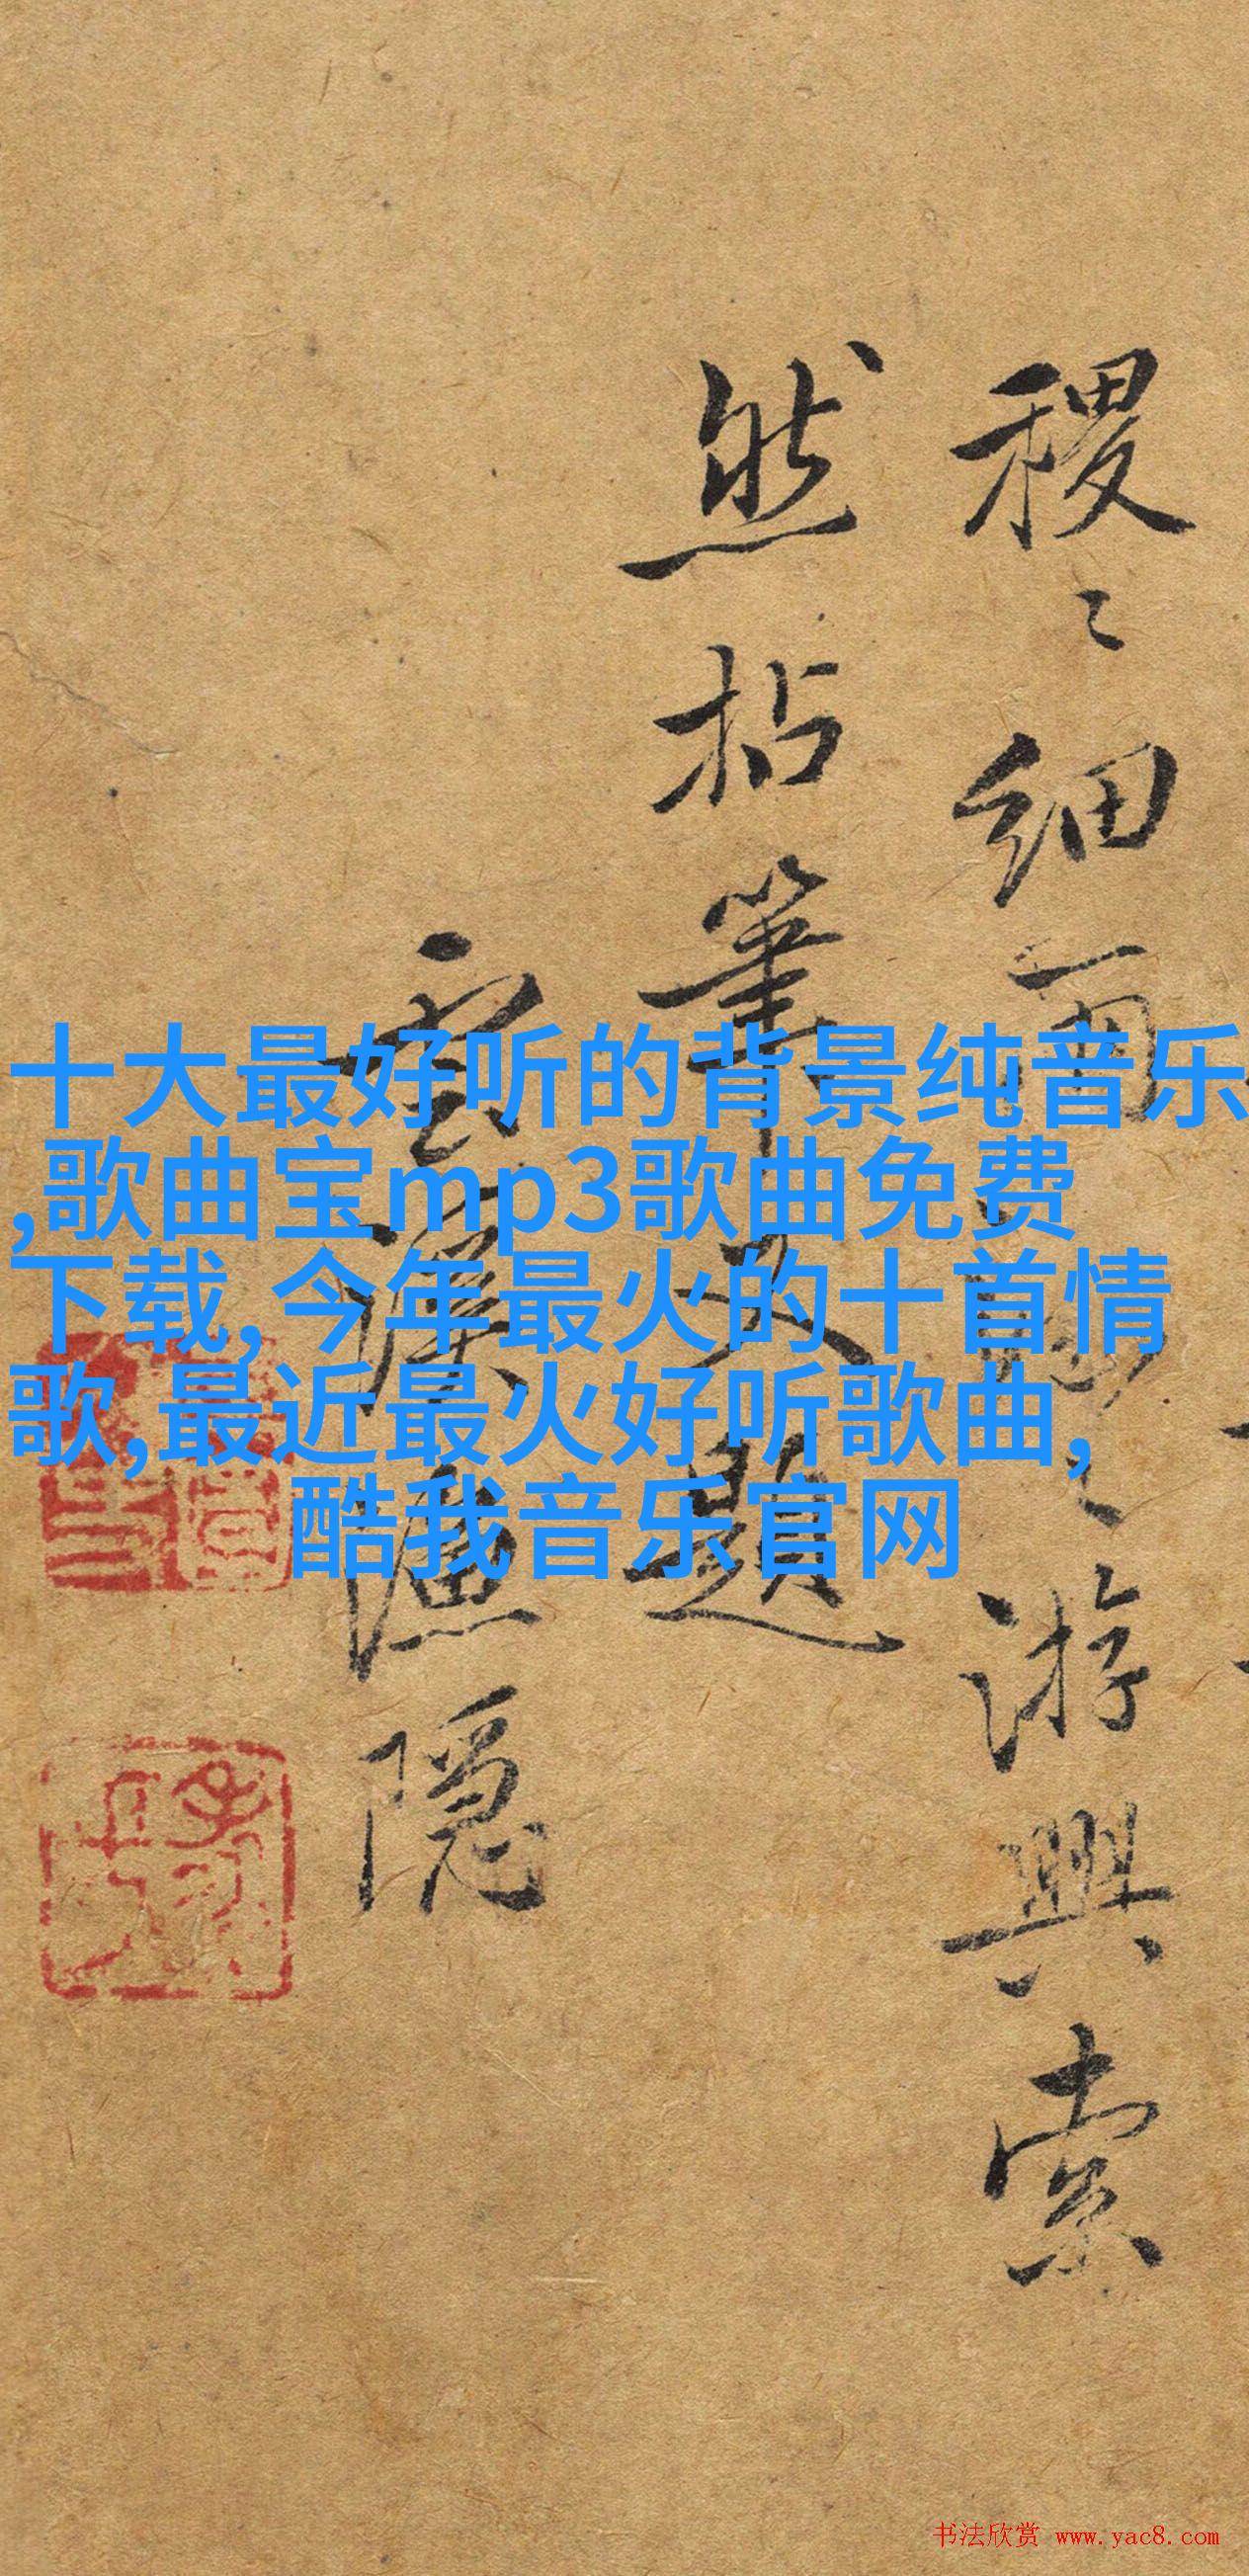 稷〻細雨
游興索
然拈筆又題
雲溪漁隱
十大最好听的背景纯音乐
,歌曲宝mp3歌曲免费
下载, 今年最火的十首情
歌,最近最火好听歌曲,
酷我音乐官网
书法欣赏 www.yac8.com